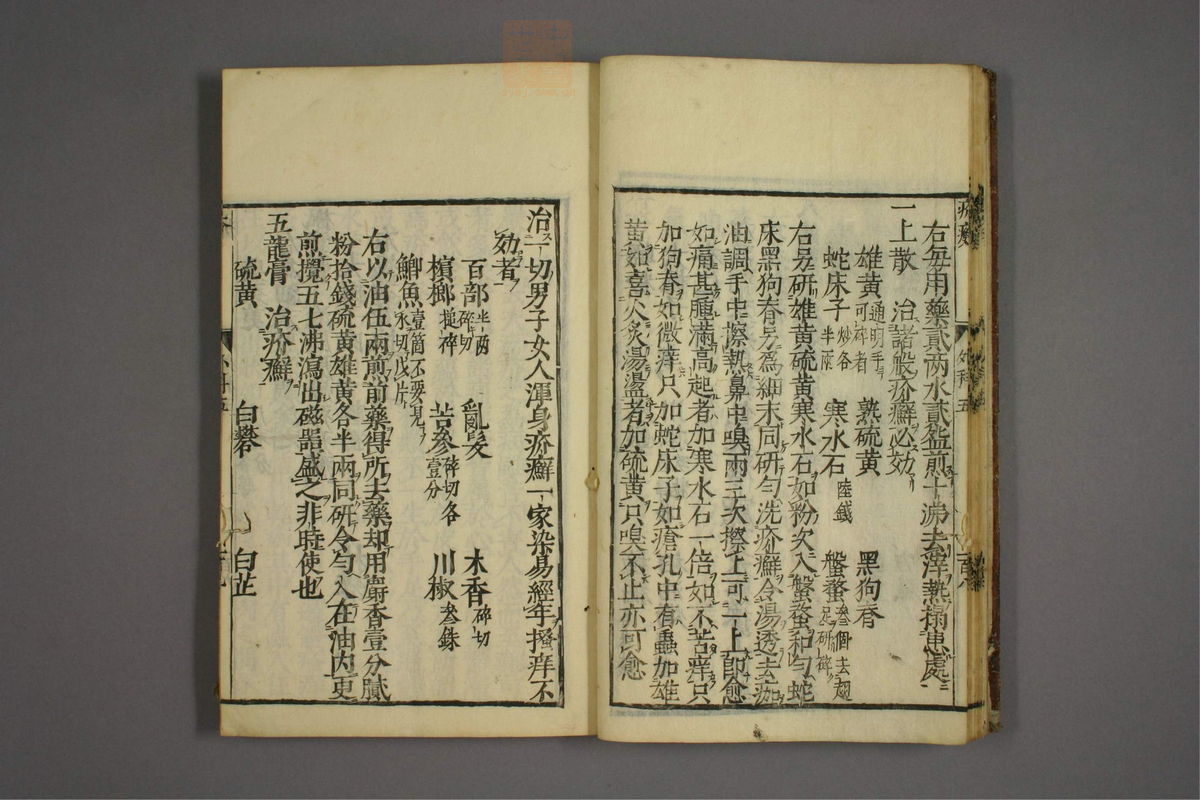 右每用藥貳兩水貳盌煎十沸去滓熱搨患處
一上散　治諸般疥癬必効
雄黃通明手可碎者　熟硫黃　黑狗脊
蛇床子炒各半兩　寒水石陸錢　蟹蝥叁個去翅足研碎
右另研雄黃硫黃寒水石如粉次入蟹蝥和勻蛇
床黑狗脊另爲細末同研勻洗疥癬令湯透去痂
油調手中擦熱鼻中嗅兩三次擦上可一上即愈
如痛甚腫滿高起者加寒水石一倍如不苦痒只
加狗脊如微痒只加蛇床子如瘡孔中有蟲加雄
黃如喜火炙湯盪者加硫黃只嗅不止亦可愈
治一切男子女人渾身疥癬一家染易經年搔痒不
効者
百部半兩碎切　亂髮　木香碎切
檳榔搥碎　苦參碎切各壹分　川椒叁銖
鯽魚壹箇不要見水切戊片
右以油伍兩煎前藥得所去藥却用麝香壹分膩
粉拾錢硫黃雄黃各半兩同研令勻入在油內更
煎攪五七沸瀉出磁器盛之非時使也
五龍膏　治疥癬
硫黃　白礬　白芷